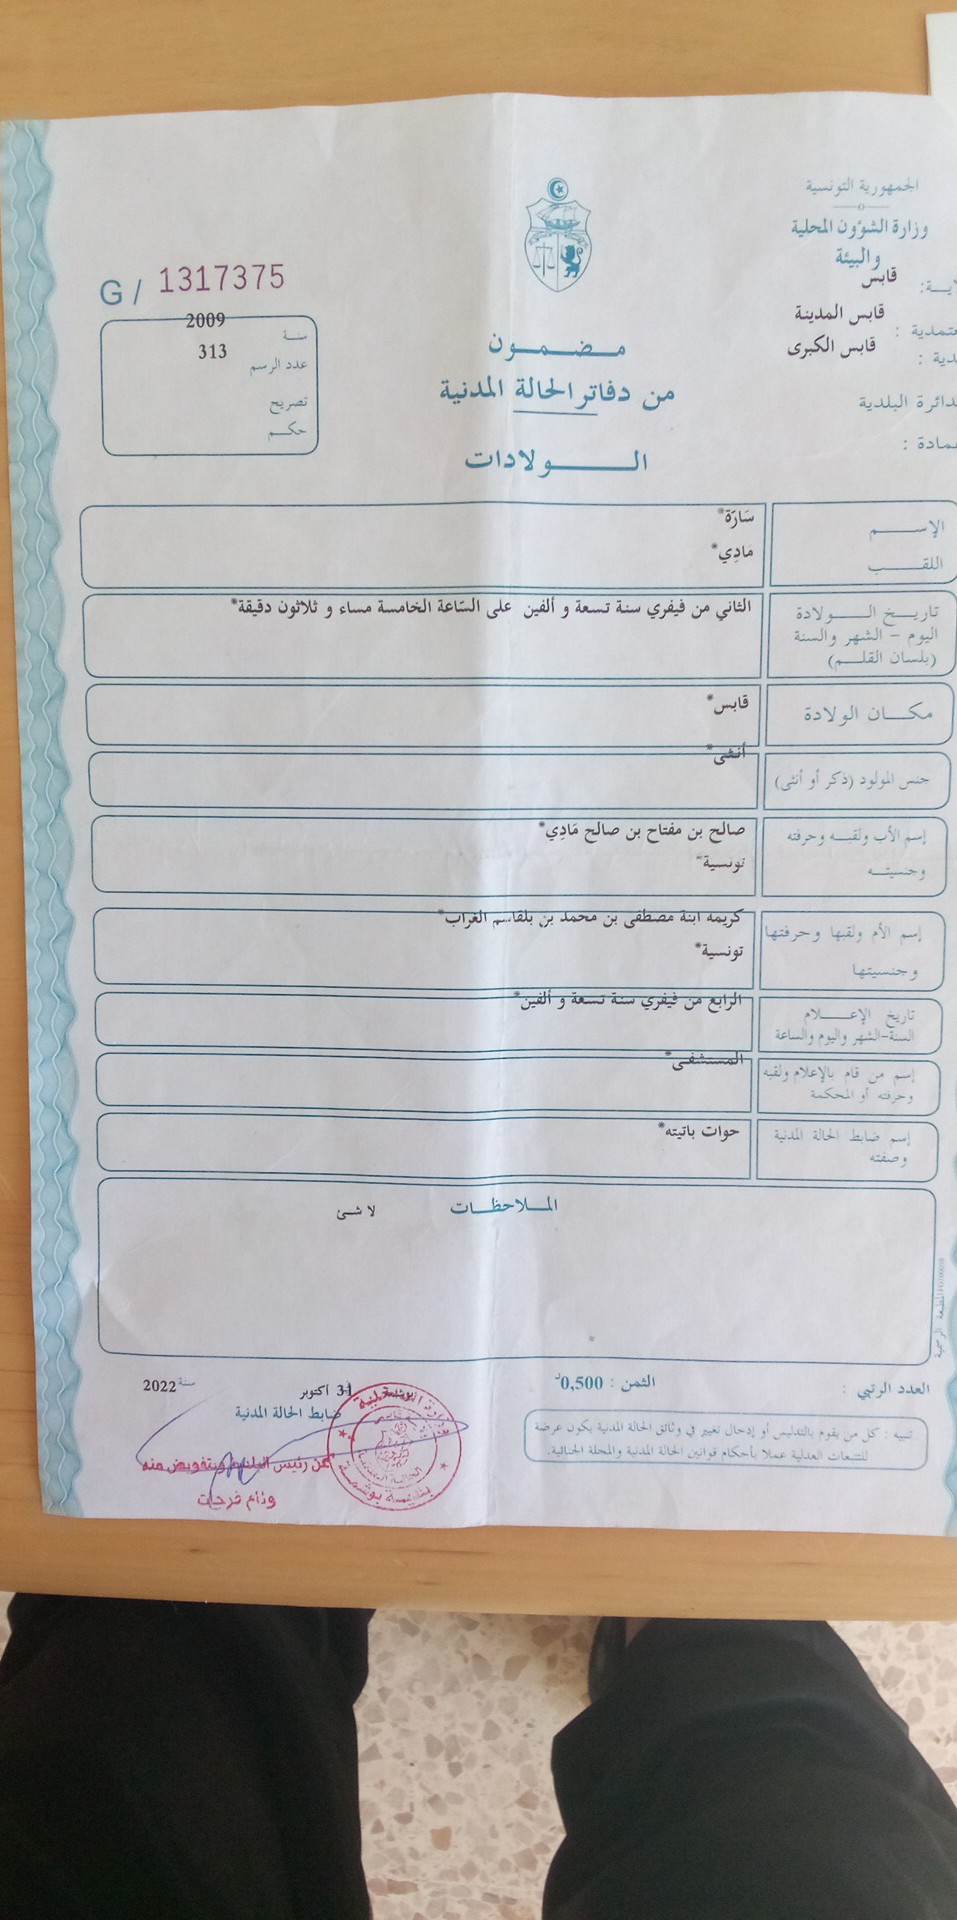 الجمهورية التونسية
وزارة الشؤون المحلية
والبيئة
قابس
قابس المدينة
قابس الكبرى
الدائرة البلدية
G / 1317375
سنة 2009
عدد الرسم 313
تصريح
حكم
مضمون
من دفاتر الحالة المدنية
الولادات
الإسم
سَارّة*
اللقب
مَادِي*
تاريخ الولادة
اليوم - الشهر والسنة
(بلسان القلم)
الثاني من فيفري سنة تسعة و ألفين على السّاعة الخامسة مساء و ثلاثون دقيقة*
مكان الولادة
قابس*
جنس المولود (ذكر أو أنثى)
أنثى*
إسم الأب ولقبه وحرفته
وجنسيته
صالح بن مفتاح بن صالح مَادِي*
تونسية*
إسم الأم ولقبها وحرفتها
وجنسيتها
كريمه ابنة مصطفى بن محمد بن بلقاسم الغراب*
تونسية*
تاريخ الإعلام
السنة-الشهر واليوم والساعة
الرابع من فيفري سنة تسعة و ألفين*
إسم من قام بالإعلام ولقبه
وحرفته أو المحكمة
المستشفى*
إسم ضابط الحالة المدنية
وصفته
حوات باتيته*
الملاحظات
لا شئ
العدد الرتبي :
الثمن : 0,500د
31 أكتوبر سنة 2022
ضابط الحالة المدنية
عن رئيس البلدية وبتفويض منه
وئام فرحات
تنبيه : كل من يقوم بالتدليس أو إدخال تغيير في وثائق الحالة المدنية يكون عرضة
للتتبعات العدلية عملا بأحكام قوانين الحالة المدنية والمجلة الجنائية.